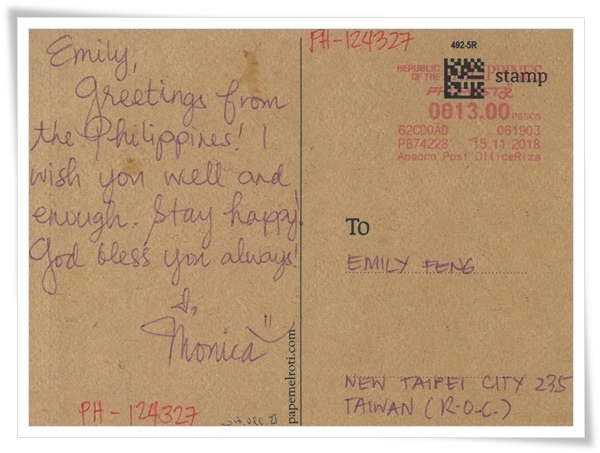 Emily,
Greetings from
the Philippines! I
wish you well and
enough. Stay happy!
God bless you always!
Monica
PH-124327
papemelroti.com
PH-124327
492-5R
REPUBLIC
OF THE PPINES
stamp
0013.00 PESOS
62CD0A0 061903
PB74228 15.11.2018
Angono Post OfficeRiza
To
EMILY FENG
NEW TAIPEI CITY 235
TAIWAN (R.O.C.)